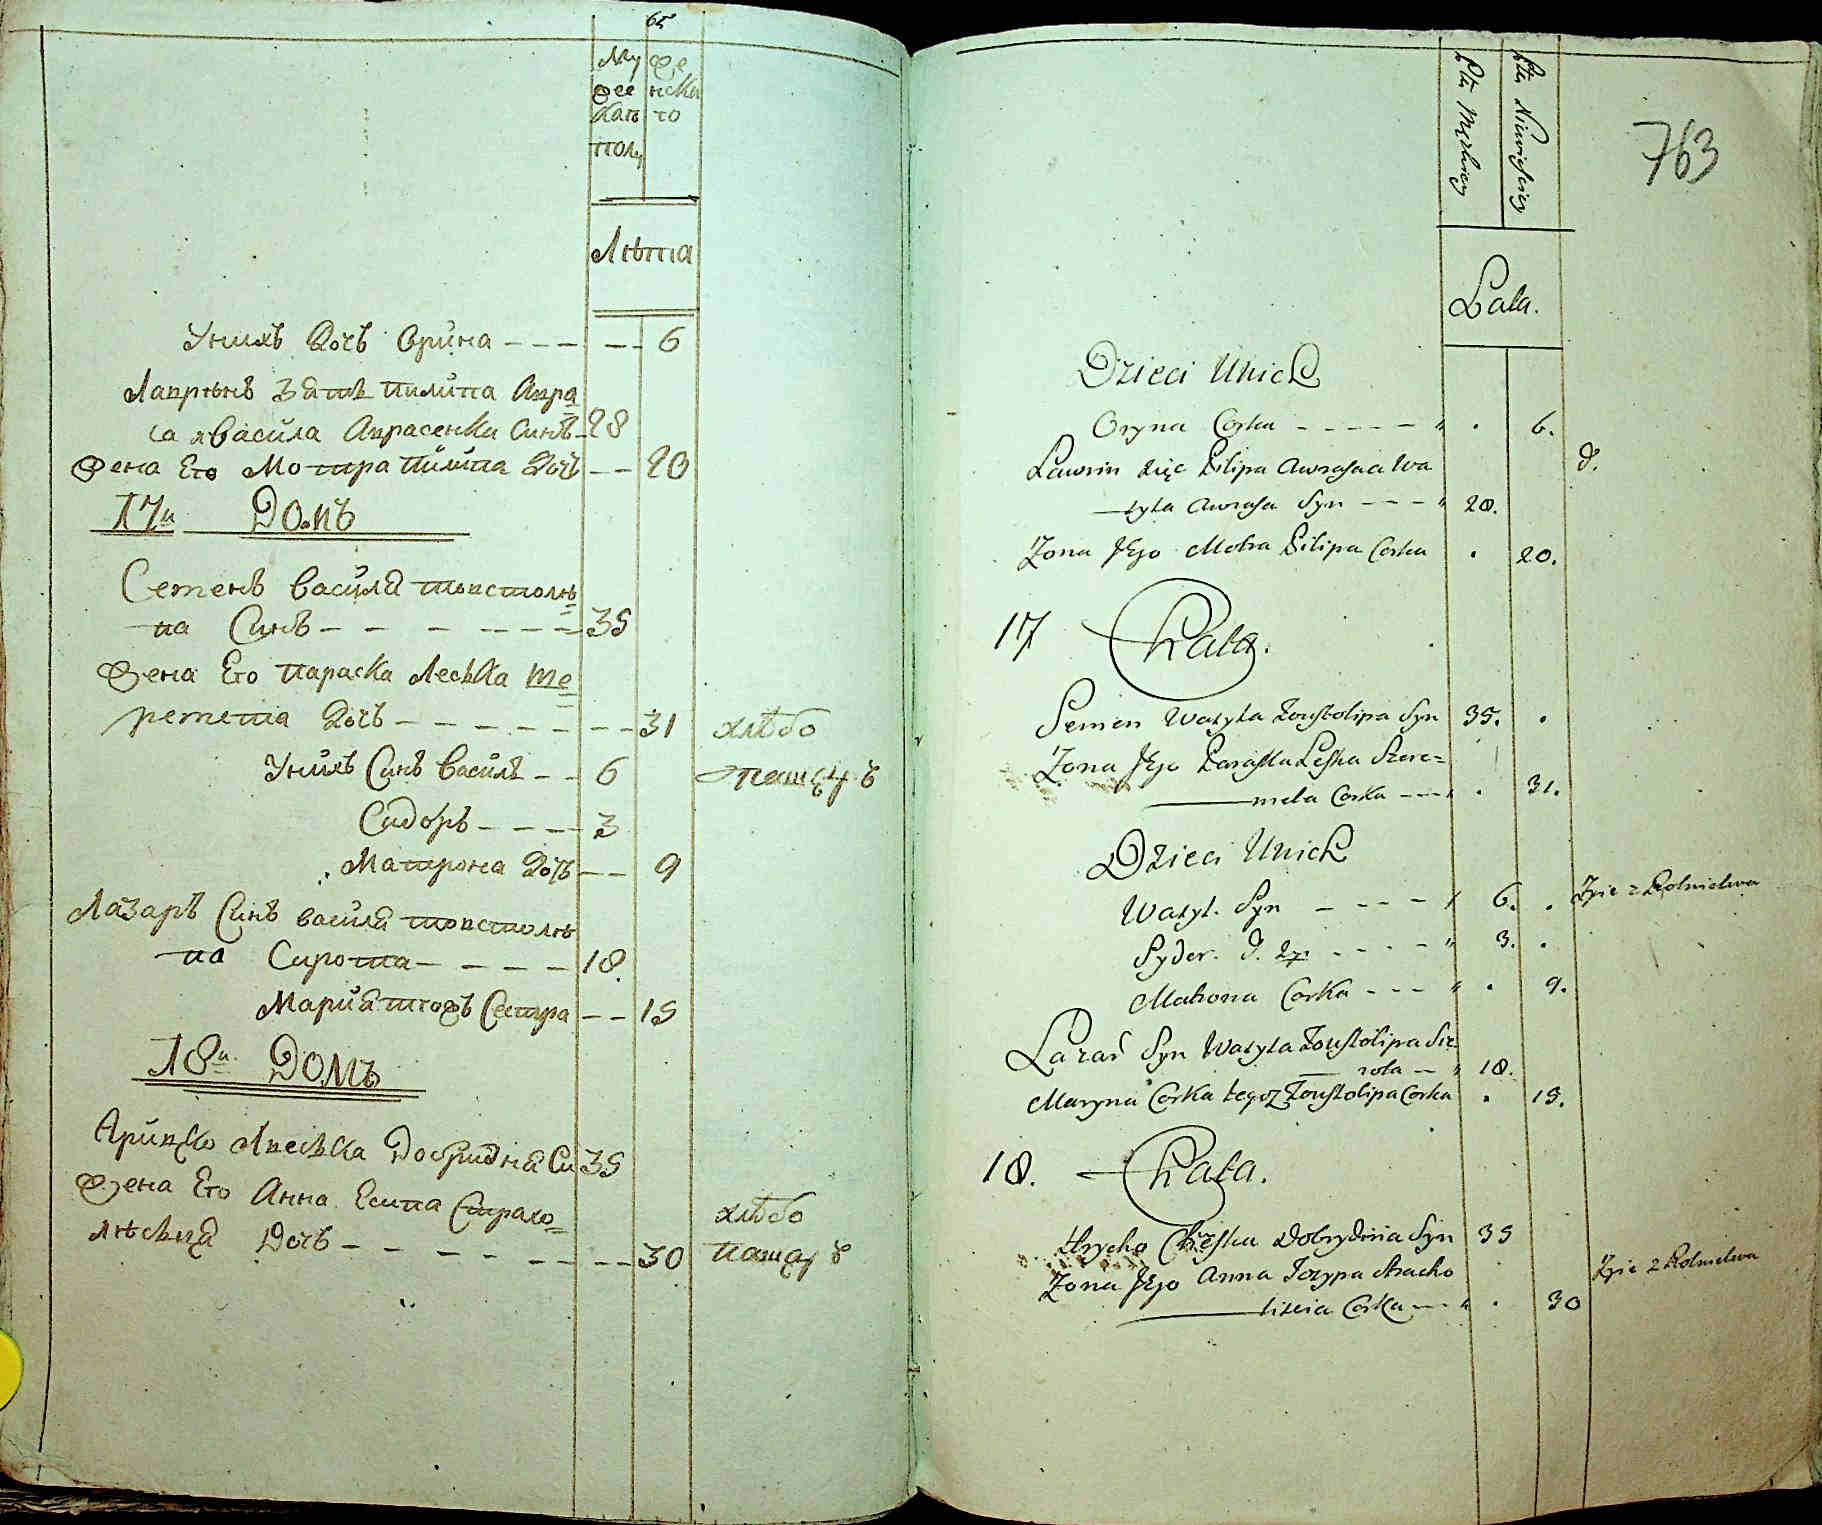 65
Му же
жес нска
каг го
полу
Лѣта
Унихъ дочь Орина - - - - - 6
Лаврѣнъ зать Пилипа Авра
са Васила Аврасенка Синъ - 28
Жена Его Мотра Пилипа дочь - - 20
17й Домъ
Семенъ Василя Товстолѣ=
па Синъ - - - - - - 35
Жена Его Параска Леська Ше=
ремета дочь - - - - - - - 31 хлѣбо
Унихъ Синъ Василь - - 6 пашец ъ
Сидоръ - - - - 3
Матрона дочь - - 9
Лазаръ Синъ Василя Товстолѣ
па Сирота - - - - - 18.
Мария тогожъ Сестра - - 15
18й Домъ
Грицко Олеська Добридня Си 35
Жена Его Анна Есипа Страхо= хлѣбо
лѣсьця Дочь - - - - - - - 30 пашец ъ
Płci Męzkiey
Płci Niewieściey
763
Lata.
Dzieci Unich
Oryna Corka - - - - - " . 6.
Lawrin zięc Pilipa Awrasa a Wa d.
syla Awrasa Syn - - - " 28.
Zona Jego Motra Pilipa Corka . 20.
17 Chata.
Semen Wasyla Toustolipa Syn 35. .
Zona Jego Paraska Leska Szere=
meta Corka - - - . 31.
Dzieci Unich
Wasyl. Syn - - - - 6. . Żyie z Rolnictwa
Syder. d. - - - - " 3. .
Matrona Corka - - - " . 9.
Lazar Syn Wasyla Toustolipa Sie
rota - " 18.
Maryna Corka tegoz Toustolipa Corka . 15.
18. Chata.
Hrycko Oleska Dobrydnia Syn 35
Zona Jego Anna Jozypa Stracho Żyie z Rolnictwa
lisia Corka - - " . 30